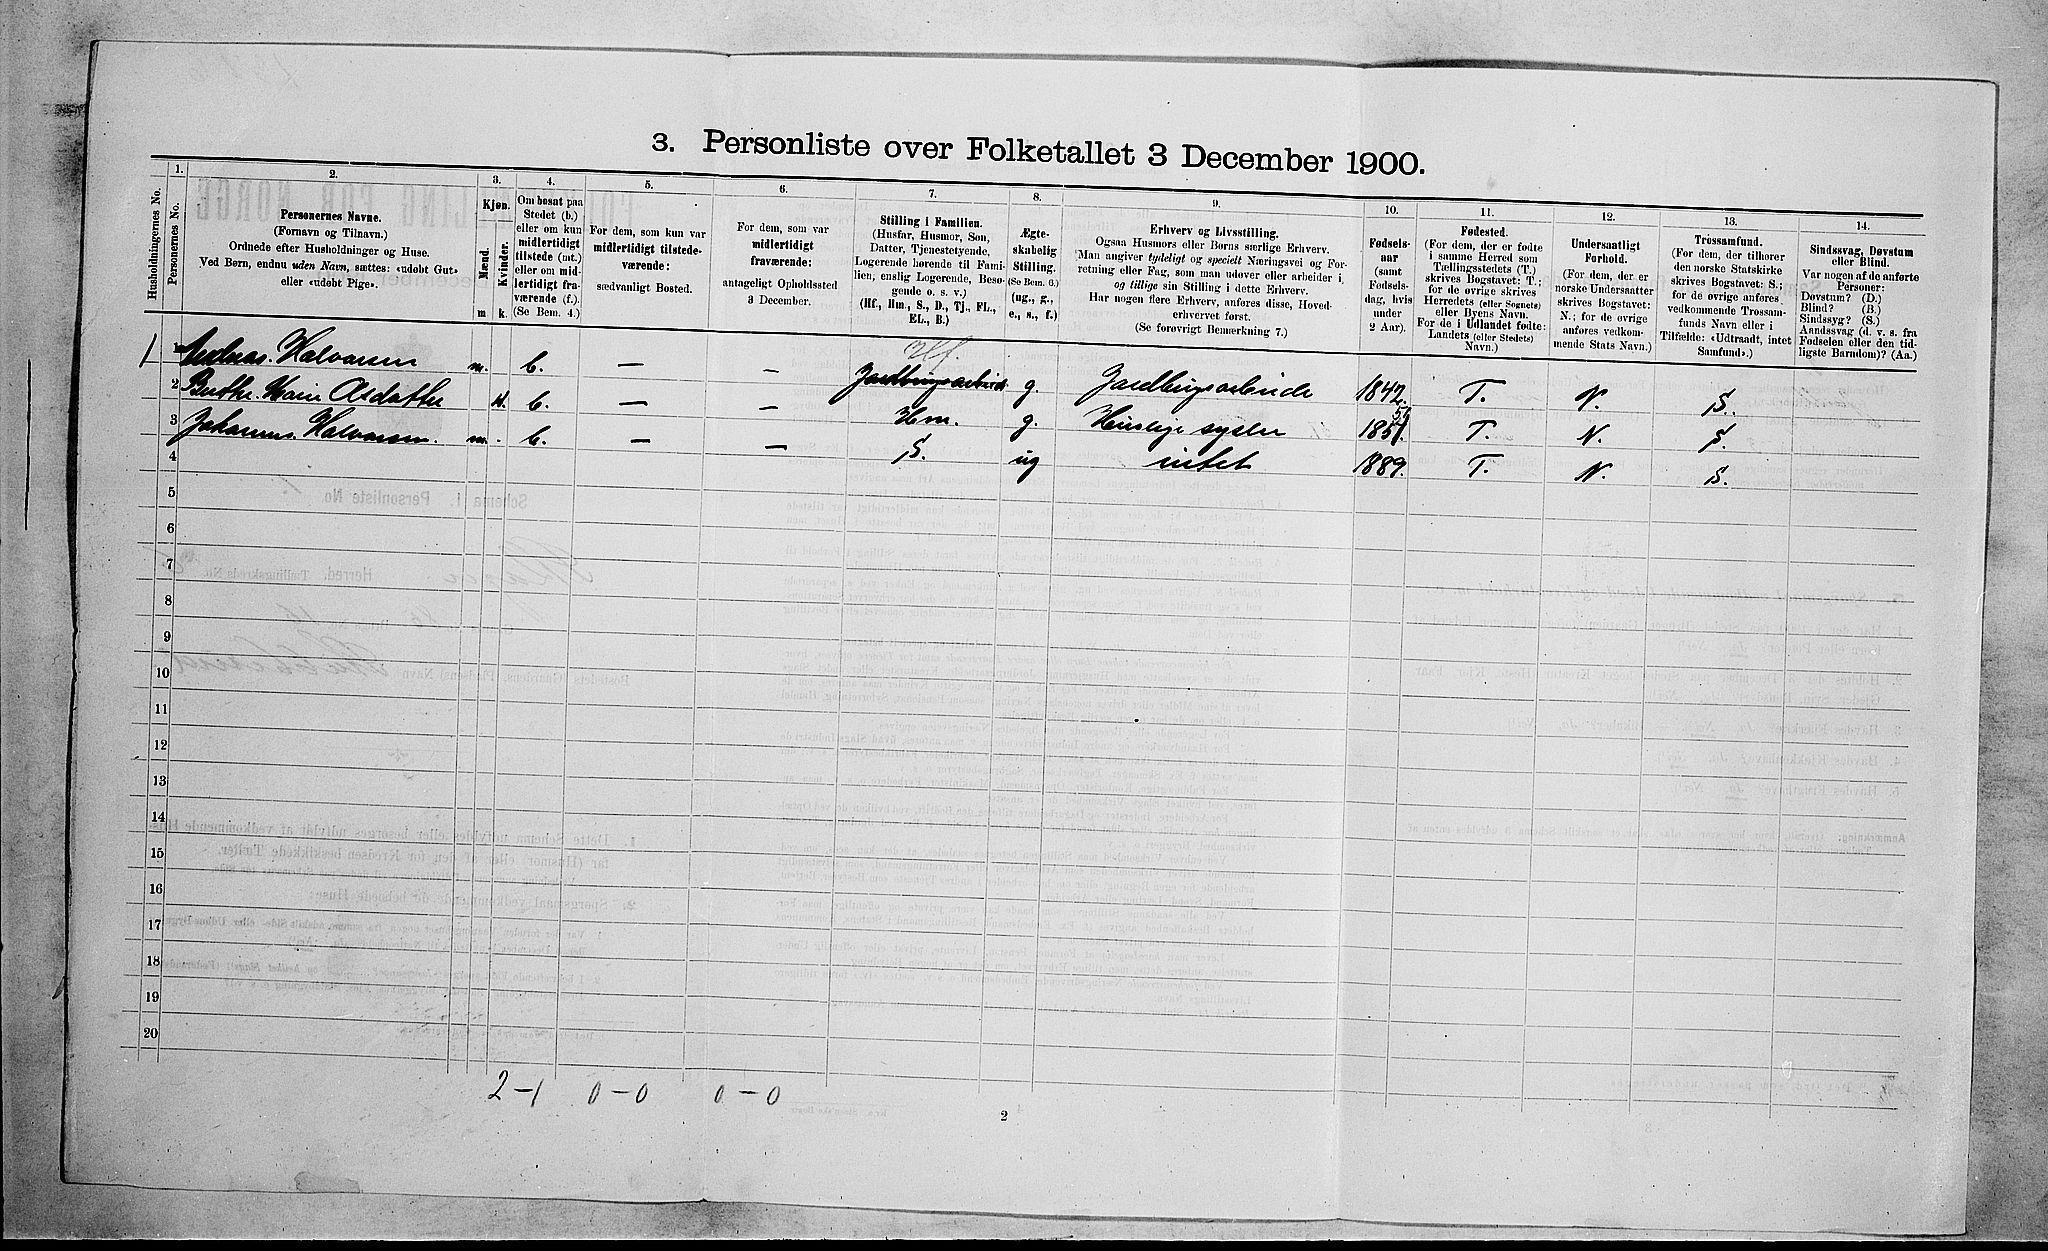 3. Personliste over Folketallet 3 December 1900.
Husholdningernes No.
1.
Personernes No.
2.
Personernes Navne.
(Fornavn og Tilnavn.)
Ordnede efter Husholdninger og Huse.
Ved Børn, endnu uden Navn, sættes: «udøbt Gut»
eller «udøbt Pige».
3.
Kjøn.
Mænd.
Kvinder.
m
k.
4.
Om bosat paa
Stedet (b.)
eller om kun
midlertidigt
tilstede (mt.)
eller om mid-
lertidigt fra-
værende (f.).
(Se Bem. 4.)
5.
For dem, som kun var
midlertidigt tilstede-
værende:
sædvanligt Bosted.
6.
For dem, som var
midlertidigt
fraværende:
antageligt Opholdssted
3 December.
7.
Stilling i Familien.
(Husfar, Husmor, Søn,
Datter, Tjenestetyende,
Logerende hørende til Fami-
lien, enslig Logerende, Besø-
gende o. s. v.)
(Hf., Hm., S., D., Tj., FL.,
EL., B.)
8.
Ægte-
skabelig
Stilling.
(Se Bem. 6.)
(ug., g.,
e., s., f.)
9.
Erhverv og Livsstilling.
Ogsaa Husmors eller Børns særlige Erhverv.
(Man angiver tydeligt og specielt Næringsvei og For-
retning eller Fag, som man udøver eller arbeider i,
og tillige sin Stilling i dette Erhverv.
Har nogen flere Erhverv, anføres disse, Hoved-
erhvervet først.
(Se forøvrigt Bemærkning 7.)
10.
Fødsels-
aar
(samt
Fødsels-
dag, hvis
under
2 Aar).
11.
Fødested.
(For dem, der er fødte
i samme Herred som
Tællingsstedets (T.)
skrives Bogstavet: T.;
for de øvrige skrives
Herredets (eller Sognets)
eller Byens Navn.
For de i Udlandet fødte:
Landets (eller Stedets)
Navn.)
12.
Undersaatligt
Forhold.
(For dem, der er
norske Undersaatter
skrives Bogstavet:
N.; for de øvrige
anføres vedkom-
mende Stats Navn.)
13.
Trossamfund.
(For dem, der tilhører
den norske Statskirke
skrives Bogstavet: S.;
for de øvrige anføres
vedkommende Trossam-
funds Navn eller i
Tilfælde: «Udtraadt, intet
Samfund».)
14.
Sindssvag, Døvstum
eller Blind.
Var nogen af de anførte
Personer:
Døvstum? (D.)
Blind? (B.)
Sindssyg? (S.)
Aandssvag (d. v. s. fra
Fødselen eller den tid-
ligste Barndom)? (Aa.)
1 1 Halvorsen m. b. — — Hf. Jordbrugsarbeide g. Jordbrugsarbeide 1842. T. N. S.
2 Marie k. b. — — Hm. g. Huslige sysler 185 T. N. S.
3 Johannes Halvorsen. m. b. — — S. ug intet 1889. T. N. S.
4
5
6
7
8
9
10
11
12
13
14
15
16
17
18
19
20
2 – 1 0 – 0 0 – 0
2